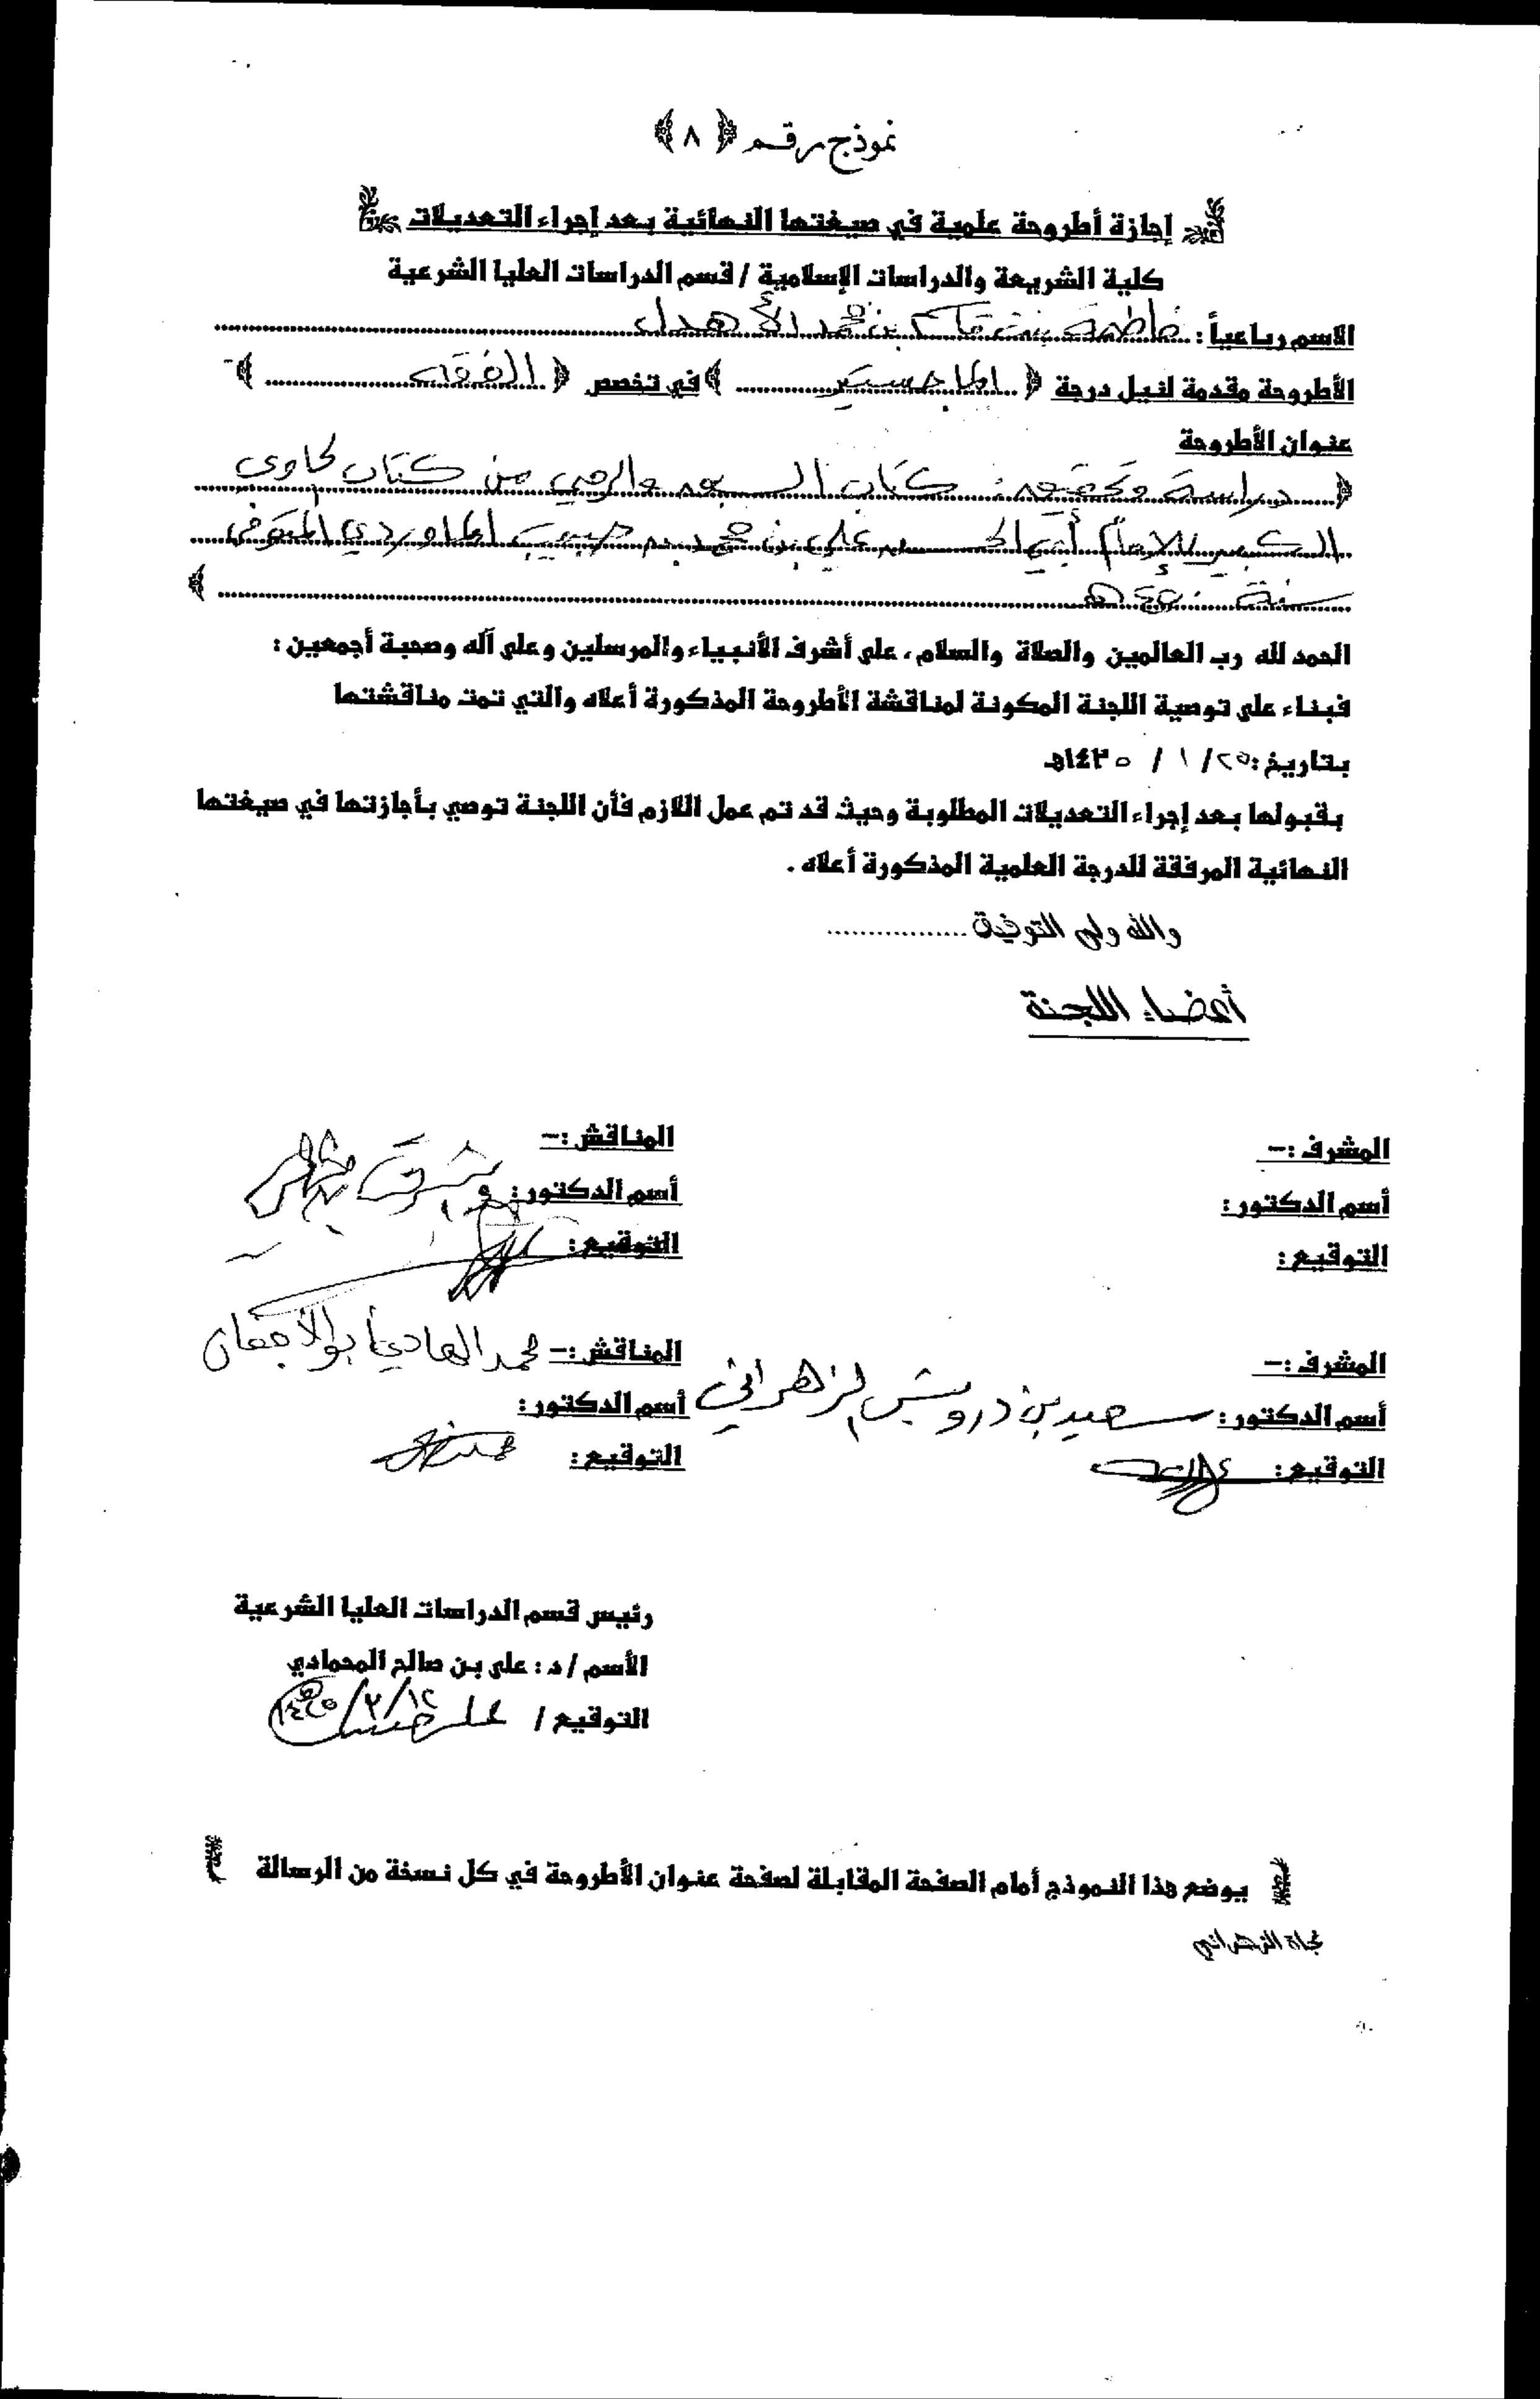 نموذج رقم ﴿ ٨ ﴾
إجازة أطروحة علمية في صيغتها النهائية بعد إجراء التعديلات
كلية الشريعة والدراسات الإسلامية / قسم الدراسات العليا الشرعية
الاسم رباعياً : فاطمة بنت قاسم بن محمد الأهدل
الأطروحة مقدمة لنيل درجة ﴿ الماجستير ﴾ في تخصص ﴿ الفقه ﴾
عنوان الأطروحة
﴿ دراسة وتحقيق : كتاب السبق والرمي من كتاب الحاوي
الكبير للإمام أبي الحسن علي بن محمد بن حبيب الماوردي المتوفى
سنة ٤٥٠ هـ ﴾
الحمد لله رب العالمين والصلاة والسلام، على أشرف الأنبياء والمرسلين وعلى آله وصحبة أجمعين :
فبناء على توصية اللجنة المكونة لمناقشة الأطروحة المذكورة أعلاه والتي تمت مناقشتها
بتاريخ : ٢٥ / ١ / ١٤٢٥هـ
بقبولها بعد إجراء التعديلات المطلوبة وحيث قد تم عمل اللازم فأن اللجنة توصي بأجازتها في صيغتها
النهائية المرفقة للدرجة العلمية المذكورة أعلاه .
والله ولي التوفيق ................
أعضاء اللجنة
المشرف :-
أسم الدكتور :
التوقيع :
المناقش :-
أسم الدكتور :
التوقيع :
المشرف :-
أسم الدكتور : سعيد بن درويش الزهراني
التوقيع :
المناقش :- محمد الهادي أبو الأجفان
أسم الدكتور :
التوقيع :
رئيس قسم الدراسات العليا الشرعية
الأسم / د : على بن صالح المحمادي
التوقيع / ١٢/ ٢/ ١٤٢٥هـ
يوضع هذا النموذج أمام الصفحة المقابلة لصفحة عنوان الأطروحة في كل نسخة من الرسالة
نجاة الزهراني